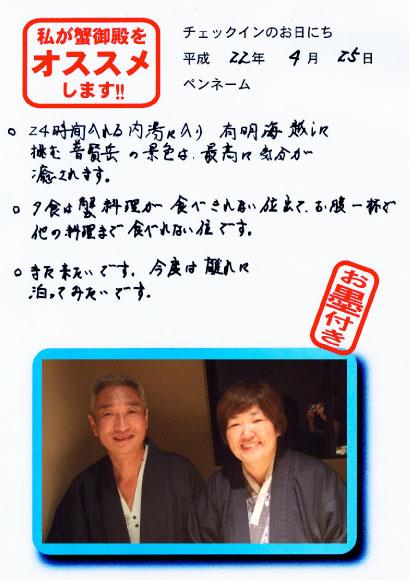 私が蟹御殿を
オススメ
します!!
チェックインのお日にち
平成 22年 4月 25日
ペンネーム
○ 24時間入れる内湯に入り 有明海越しに
挑む普賢岳の景色は、最高に気分が
癒されます。
○ 夕食は蟹料理が食べきれない位出て、お腹一杯で
他の料理まで食べれない位です。
○ また来たいです。今度は離れに
泊ってみたいです。
お墨付き